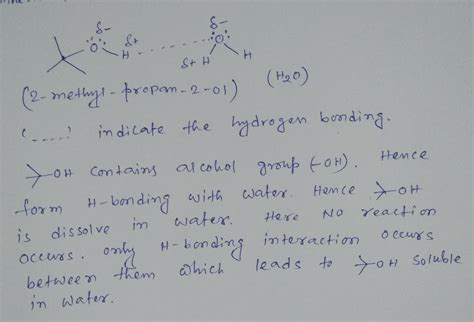 δ- δ-
O H δ+ O
δ+ H H
(2-methyl-propan-2-ol) (H2O)
'----' indicate the hydrogen bonding.
OH contains alcohol group (-OH). Hence
form H-bonding with water. Hence OH
is dissolve in water. Here NO reaction
occurs. only H-bonding interaction occurs
between them which leads to OH soluble
in water.